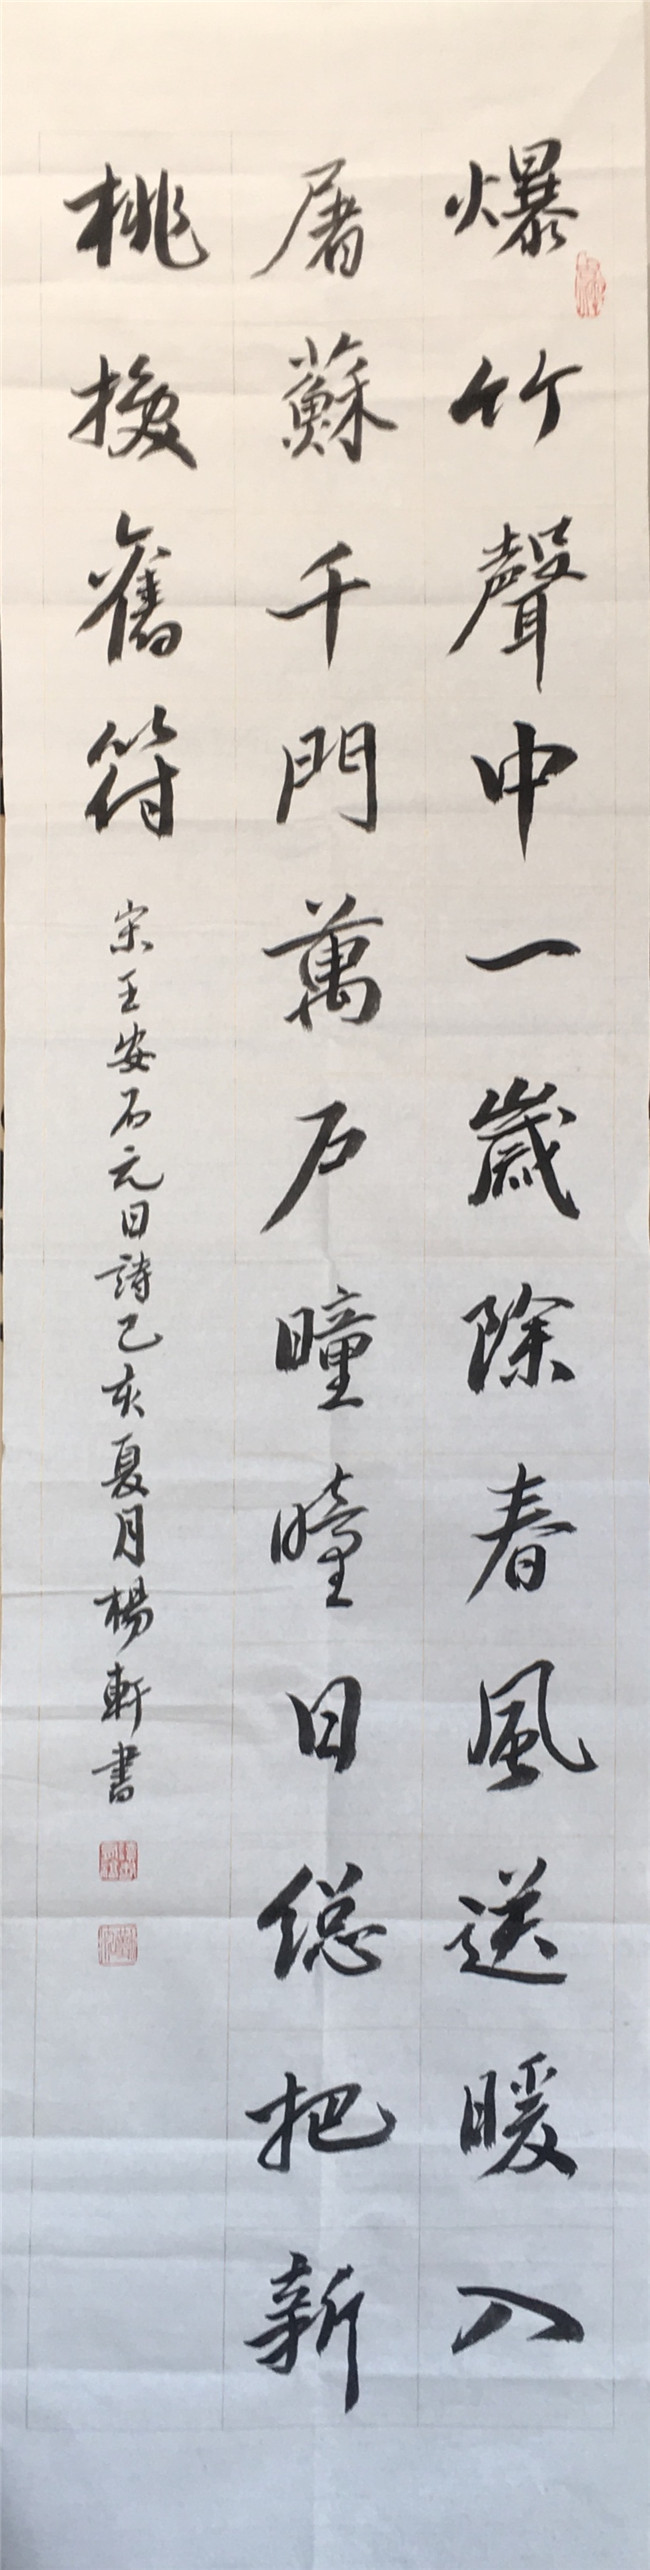 爆竹聲中一歲除春風送暖入
屠蘇千門萬戶瞳瞳日總把新
桃換舊符
宋王安石元日詩己亥夏月楊軒書